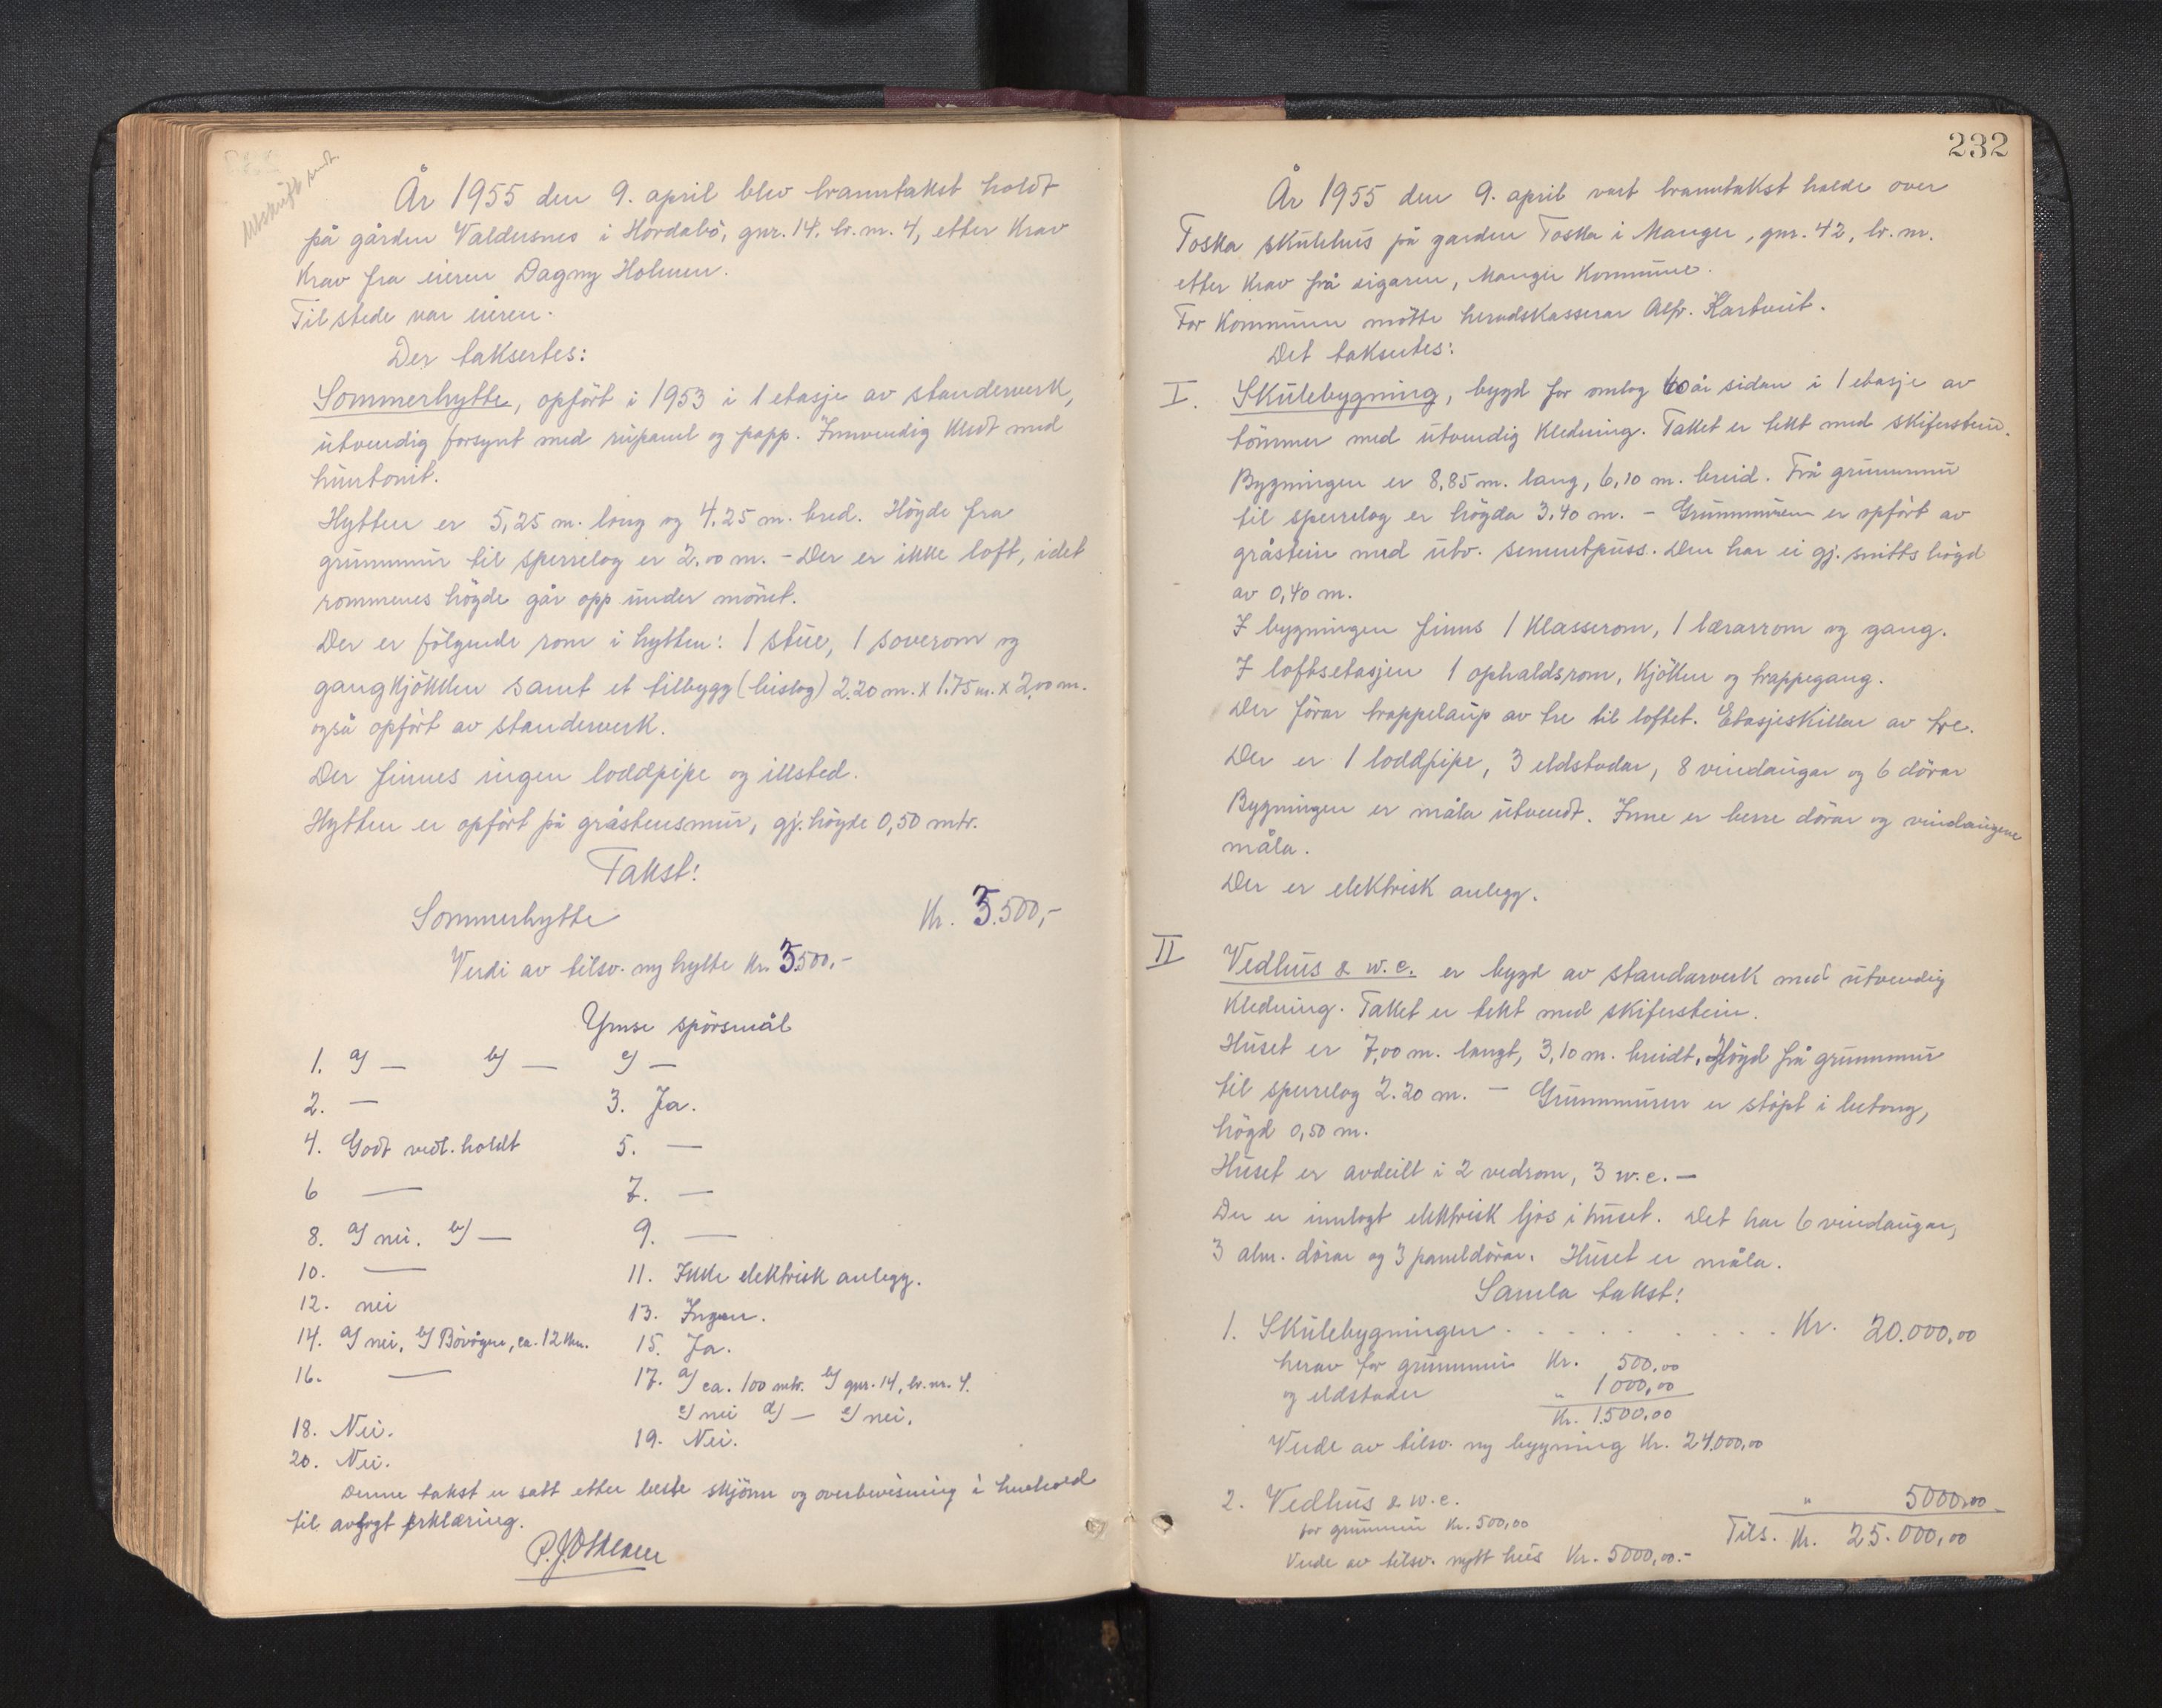 Utskrift sendt
År 1955 den 9. april blev branntakst holdt
på gården Valdersnes i Hordabö, gnr. 14. br. nr. 4, etter Krav
Krav fra eieren Dagny Holmen.
Tilstede var eieren.
Der taksertes:
Sommerhytte, opfört i 1953 i 1 etasje av standerverk,
utvendig forsynt med rupanel og papp. Innvendig kledt med
huntonit.
Hytten er 5,25 m. lang og 4,25 m. bred. Höyde fra
grunnmur til sperrelag er 2,00 m. - Der er ikke loft, idet
rommenes högde går opp under mönet.
Der er fölgende rom i hytten: 1 stue, 1 soverom og
gangkjökken samt et tilbygg (bislag) 2.20 m. x 1.75 m. x 2,00 m.
også opfört av standerverk.
Der finnes ingen loddpipe og illsted.
Hytten er opfört på gråstensmur, gj. höyde 0,50 mtr.
Takst:
Sommerhytte Kr. 3.500,-
Verdi av tilsv. ny hytte Kr. 3500,-
Ymse spörsmål
1. a) — b) — c) —
2. — 3. Ja.
4. Godt vedl. holdt 5. —
6 — 7. —
8. a) nei. b) — 9. —
10. — 11. Ikke elektrisk anlegg.
12. nei 13. Ingen.
14. a) nei, b) Bövågen, ca. 12 km. 15. Ja.
16. — 17. a) ca. 100 mtr. b) gnr. 14, br. nr. 4.
c) nei d) — e) nei.
18. Nei. 19. Nei.
20. Nei.
Denne takst er satt etter beste skjönn og overbevisning i henhold
til avlagt erklæring.
232
År 1955 den 9. april vart branntakst halde over
Toska skulehus på garden Toska i Manger, gnr. 42, br. nr.
etter Krav frå eigaren, Manger Kommune.
For Kommunen mötte heradskasserar Asfr. Kartveit.
Det taksertes:
I. Skulebygning, bygd for omlag 60 år sidan i 1 etasje av
tömmer med utvendig Kledning. Taket er tekt med skiferstein.
Bygningen er 8,85 m. lang, 6,10 m. breid. Frå grunnmur
til sperrelag er högda 3,40 m. - Grunnmuren er opfört av
gråstein med utv. sementpuss. Den har ei gj. snitts högd
av 0,40 m.
I bygningen finns 1 Klasserom, 1 lærarrom og gang.
I loftsetasjen 1 ophaldsrom, Kjökken og trappegang.
Der förar trappelaup av tre til loftet. Etasjeskillar av tre.
Der er 1 loddpipe, 3 eldstadar, 8 vindaugar og 6 dörar
Bygningen er måla utvendt. Inne er berre dörar og vindaugene
måla.
Der er elektrisk anlegg.
II Vedhus & w.c. er bygd av standarverk med utvendig
Kledning. Taket er tekt med skiferstein.
Huset er 7,00 m. langt, 3,10 m. breidt. Högd frå grunnmur
til sperrelag 2.20 m. — Grunnmuren er stöpt i betong,
högd 0,50 m.
Huset er avdeilt i 2 vedrom, 3 w.c. —
Der er innlagt elektrisk ljos i huset. Det har 6 vindaugar,
3 alm. dörar og 3 paneldörar. Huset er måla.
Samla takst:
1. Skulebygningen . . . . . . . . Kr. 20.000,00
herav for grunnmur Kr. 500,00
og eldstader " 1000,00
Kr. 1.500,00
Verde av tilsv. ny bygning Kr. 24.000,00
2. Vedhus & w.c. " 5000,00
for grunnmur Kr. 500,00
Tils. Kr. 25.000,00
Verde av tilsv. nytt hus Kr. 5000,00.-